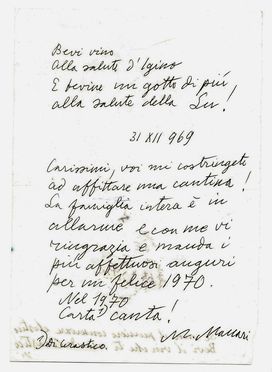 Bevi vino
alla salute d'Igino
E bevine un gotto di più,
alla salute della Lu!
31 XII 969
Carissimi, voi mi costringete
ad affittare una cantina!
La famiglia intera è in
allarme e con me vi
ringrazia e manda i
più affettuosi auguri
per un felice 1970.
Nel 1970
Carta canta!
M. Maccari